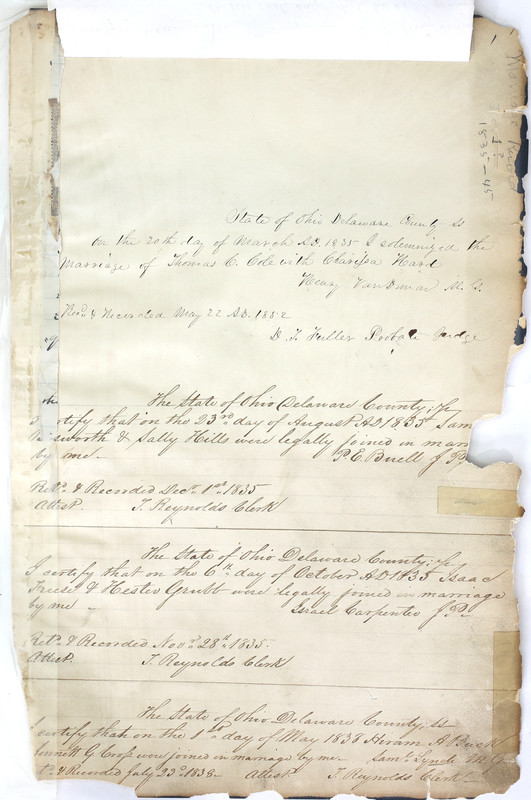 1835-45
State of Ohio Delaware County Ss
On the 20th day of March A.D. 1835 I solemnized the
Marriage of Thomas C. Cole with Clarissa Hard
Henry VanDeman M. G.
Rec.d & Recorded May 22 A.D. 1852
D. T. Fuller Probate Judge
The State of Ohio Delaware County; Ss
certify that on the 23rd day of August A.D 1835 Sam
worth & Sally Hills were legally joined in marr
by me - P. E. Buell J P
Ret.d & Recorded Dec.r 1st 1835
Attest T. Reynolds Clerk
The State of Ohio Delaware County; Ss
I certify that on the 6th day of October A.D 1835 Isaac
Freese & Hester Grubb were legally joined in marriage
by me - Israel Carpenter J P
Ret.d & Recorded Nov.r 28th 1835.
Attest. T. Reynolds Clerk
The State of Ohio Delaware County, Ss
I certify that on the 1st day of May 1838 Hiram A Buck
G Cross were joined in marriage by me - Sam.l Lynch M. G
& Recorded July 23d 1838 - Attest T. Reynolds Clerk -